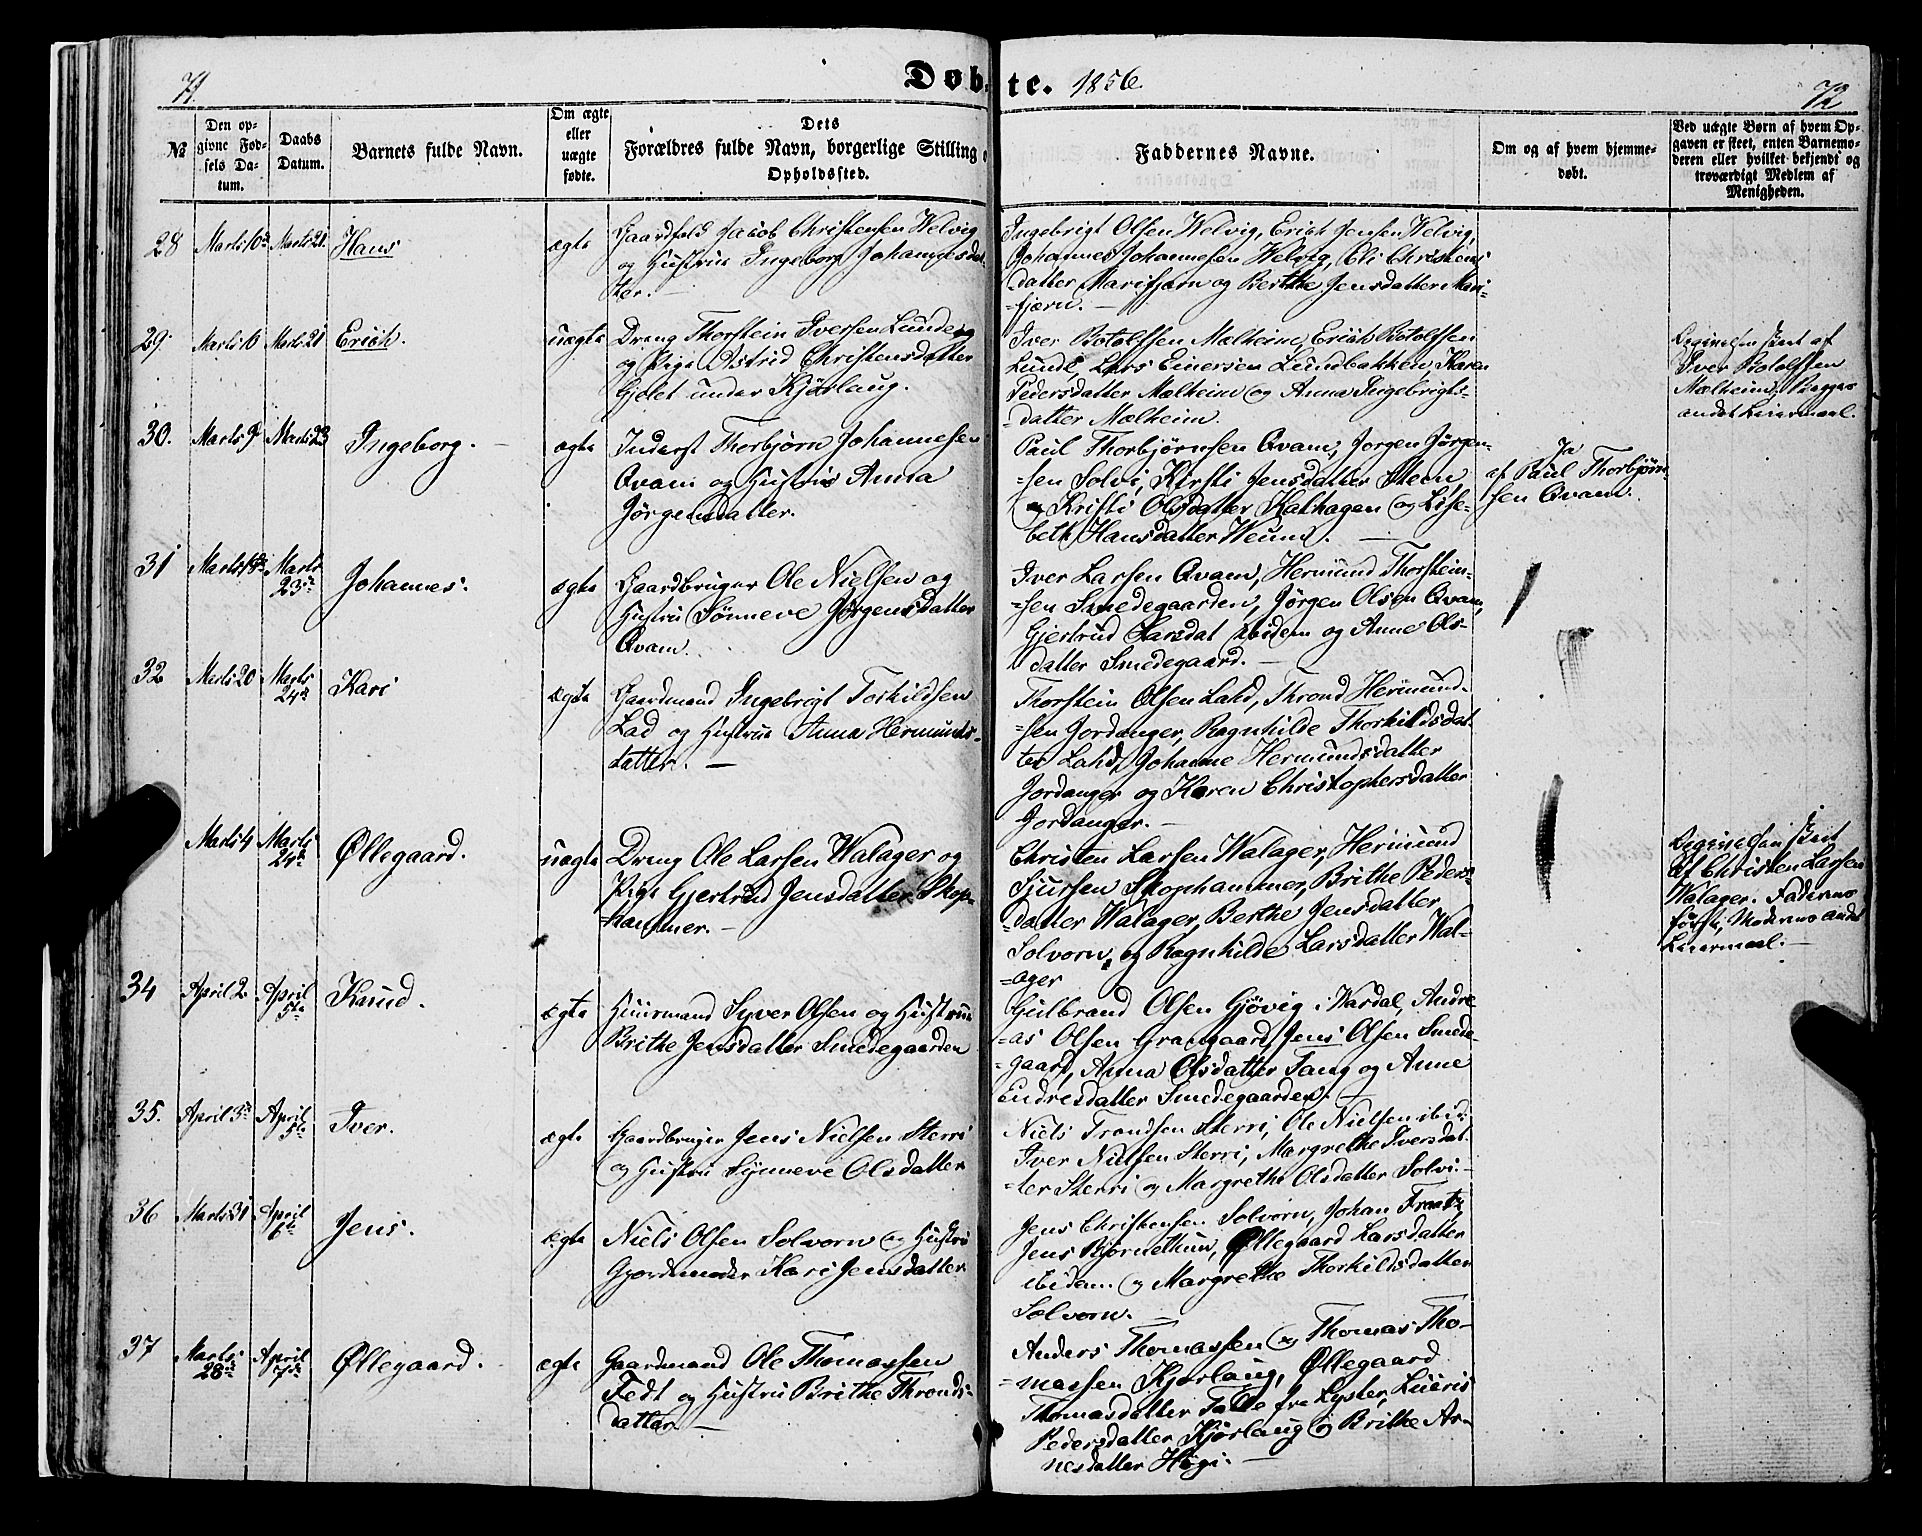 71.
Døbte. 1856.
72
№
Den opgivne Fødsels Datum.
Daabs Datum.
Barnets fulde Navn.
Om ægte eller uægte fødte.
Dets Forældres fulde Navn, borgerlige Stilling o Opholdssted.
Faddernes Navne.
Om og af hvem hjemmedøbt.
Ved uægte Børn af hvem Opgaven er skeet, enten Barnemoderen eller hvilket bekjendt og troværdigt Medlem af Menigheden.
28 Marts 10de Marts 21. Hans
ægte
Gaardfold Jacob Christensen Welvig
og Hustrue Ingeborg Johannesdat
ter. —
Ingebrigt Olsen Welvig, Erich Jensen Welvig,
Johannes Johannesen Welvig, Eli Christens
datter Marifjærn og Berthe Jensdatter Mari-
=fjærn. —
29. Marts 10 Marts 21 Erich.
uægte
Dreng Thorstein Iversen Lunde og
og Pige Astrid Christensdatter
Gjelet under Kjørlaug.
Iver Botolfsen Mælheim, Erich Botolfsen
Lunde, Lars Einersen Lundbakken, Karen
Pedersdatter Mælheim og Anna Ingebrigts-
=datter Mælheim.
Opgivelsen skeet af
Iver Botolfsen
Mælheim, Begges
andet Leiermaal.
30. Marts 9 Marts 23 Ingeborg. —
ægte
Inderst Thorbjørn Johannesen
Qvam og Hustrue Anna
Jørgensdatter.
Paul Thorbjørnsen Qvam, Jørgen Jørgen-
=sen Solvi, Kirsti Jensdatter Steen
og Kristi Olsdatter Kalhagen og Lise-
beth Hansdatter Weum. —
Ja
af Paul Thorbjørn
sen Qvam.
31 Marts 18de Marts 23de Johannes.
ægte
Gaardbruger Ole Nielsen og
Hustru Sønneve Jørgensdatter
Qvam.
Iver Larsen Qvam, Hermund Thorstein-
=sen Smedegaarden, Jørgen Olsen Qvam,
Gjertrud Larsdat ibidem og Anne Ols-
datter Smedegaard. —
32 Marts 20 Marts 24de Kari
ægte
Gaardmand Ingebrigt Torkildsen
Lad og Hustrue Anna Hermunds-
datter. —
Thorstein Olsen Lahd, Thrond Hermund-
=sen Jordanger, Ragnhilde Thorkildsdat
ter Lahd, Johanne Hermundsdatter
Jordanger og Karen Christophersdatter
Jordanger. —
Marts 4 Marts 24de Øllegaard.
uægte
Dreng Ole Larsen Walager og
Pige Gjertrud Jensdatter Skop-
=hammer. —
Christen Larsen Walager, Hermund
Sjursen Skophammer, Brithe Peders-
=datter Walager, Berthe Jensdatter
Solvorn, og Ragnhilde Larsdatter Wal-
=ager
Opgivelsen skeet
af Christen Larsen
Walager. Faderens
første, Moderens andet
Leiermaal. —
34 April 2. April 5te Knud.
ægte
Huusmand Syver Olsen og Hustrue
Brithe Jensdatter Smedegaarden
Gulbrand Olsen Gjøvig i Vardal, Andre
=as Olsen Grangaard, Jens Olsen Smede-
=gaard, Anna Olsdatter Tang og Anne
Endresdatter Smedegaarden. —
35. April 3de April 5te Iver.
ægte
Gaardbruger Jens Nielsen Sterri
og Hustru Synneve Olsdatter
Niels Trondsen Sterri, Ole Nielsen ibid:
Iver Nielsen Sterri, Margrethe Iversdat-
=ter Sterri og Margrethe Olsdatter Solvi. —
36 Marts 31 April 6te Jens.
ægte
Niels Olsen Solvorn og Hustru
Gjordemoder Kari Jensdatter
Jens Christensen Solvorn, Johan
Jens Bjørnethun, Øllegaard Larsdatter
ibidem og Margrethe Thorkildsdatter
Solvorn. —
37 Marts 28de April 7de Øllegaard.
ægte
Gaardmand Ole Thomassen
Fedt og Hustru Brithe Thronds-
datter. —
Anders Thomassen og Thomas Tho-
=massen Kjørlaug, Øllegaard
Thomasdatter Talle fra Lyster,
Pedersdatter Kjørlaug og Brithe Ar-
nesdatter Høgi. —